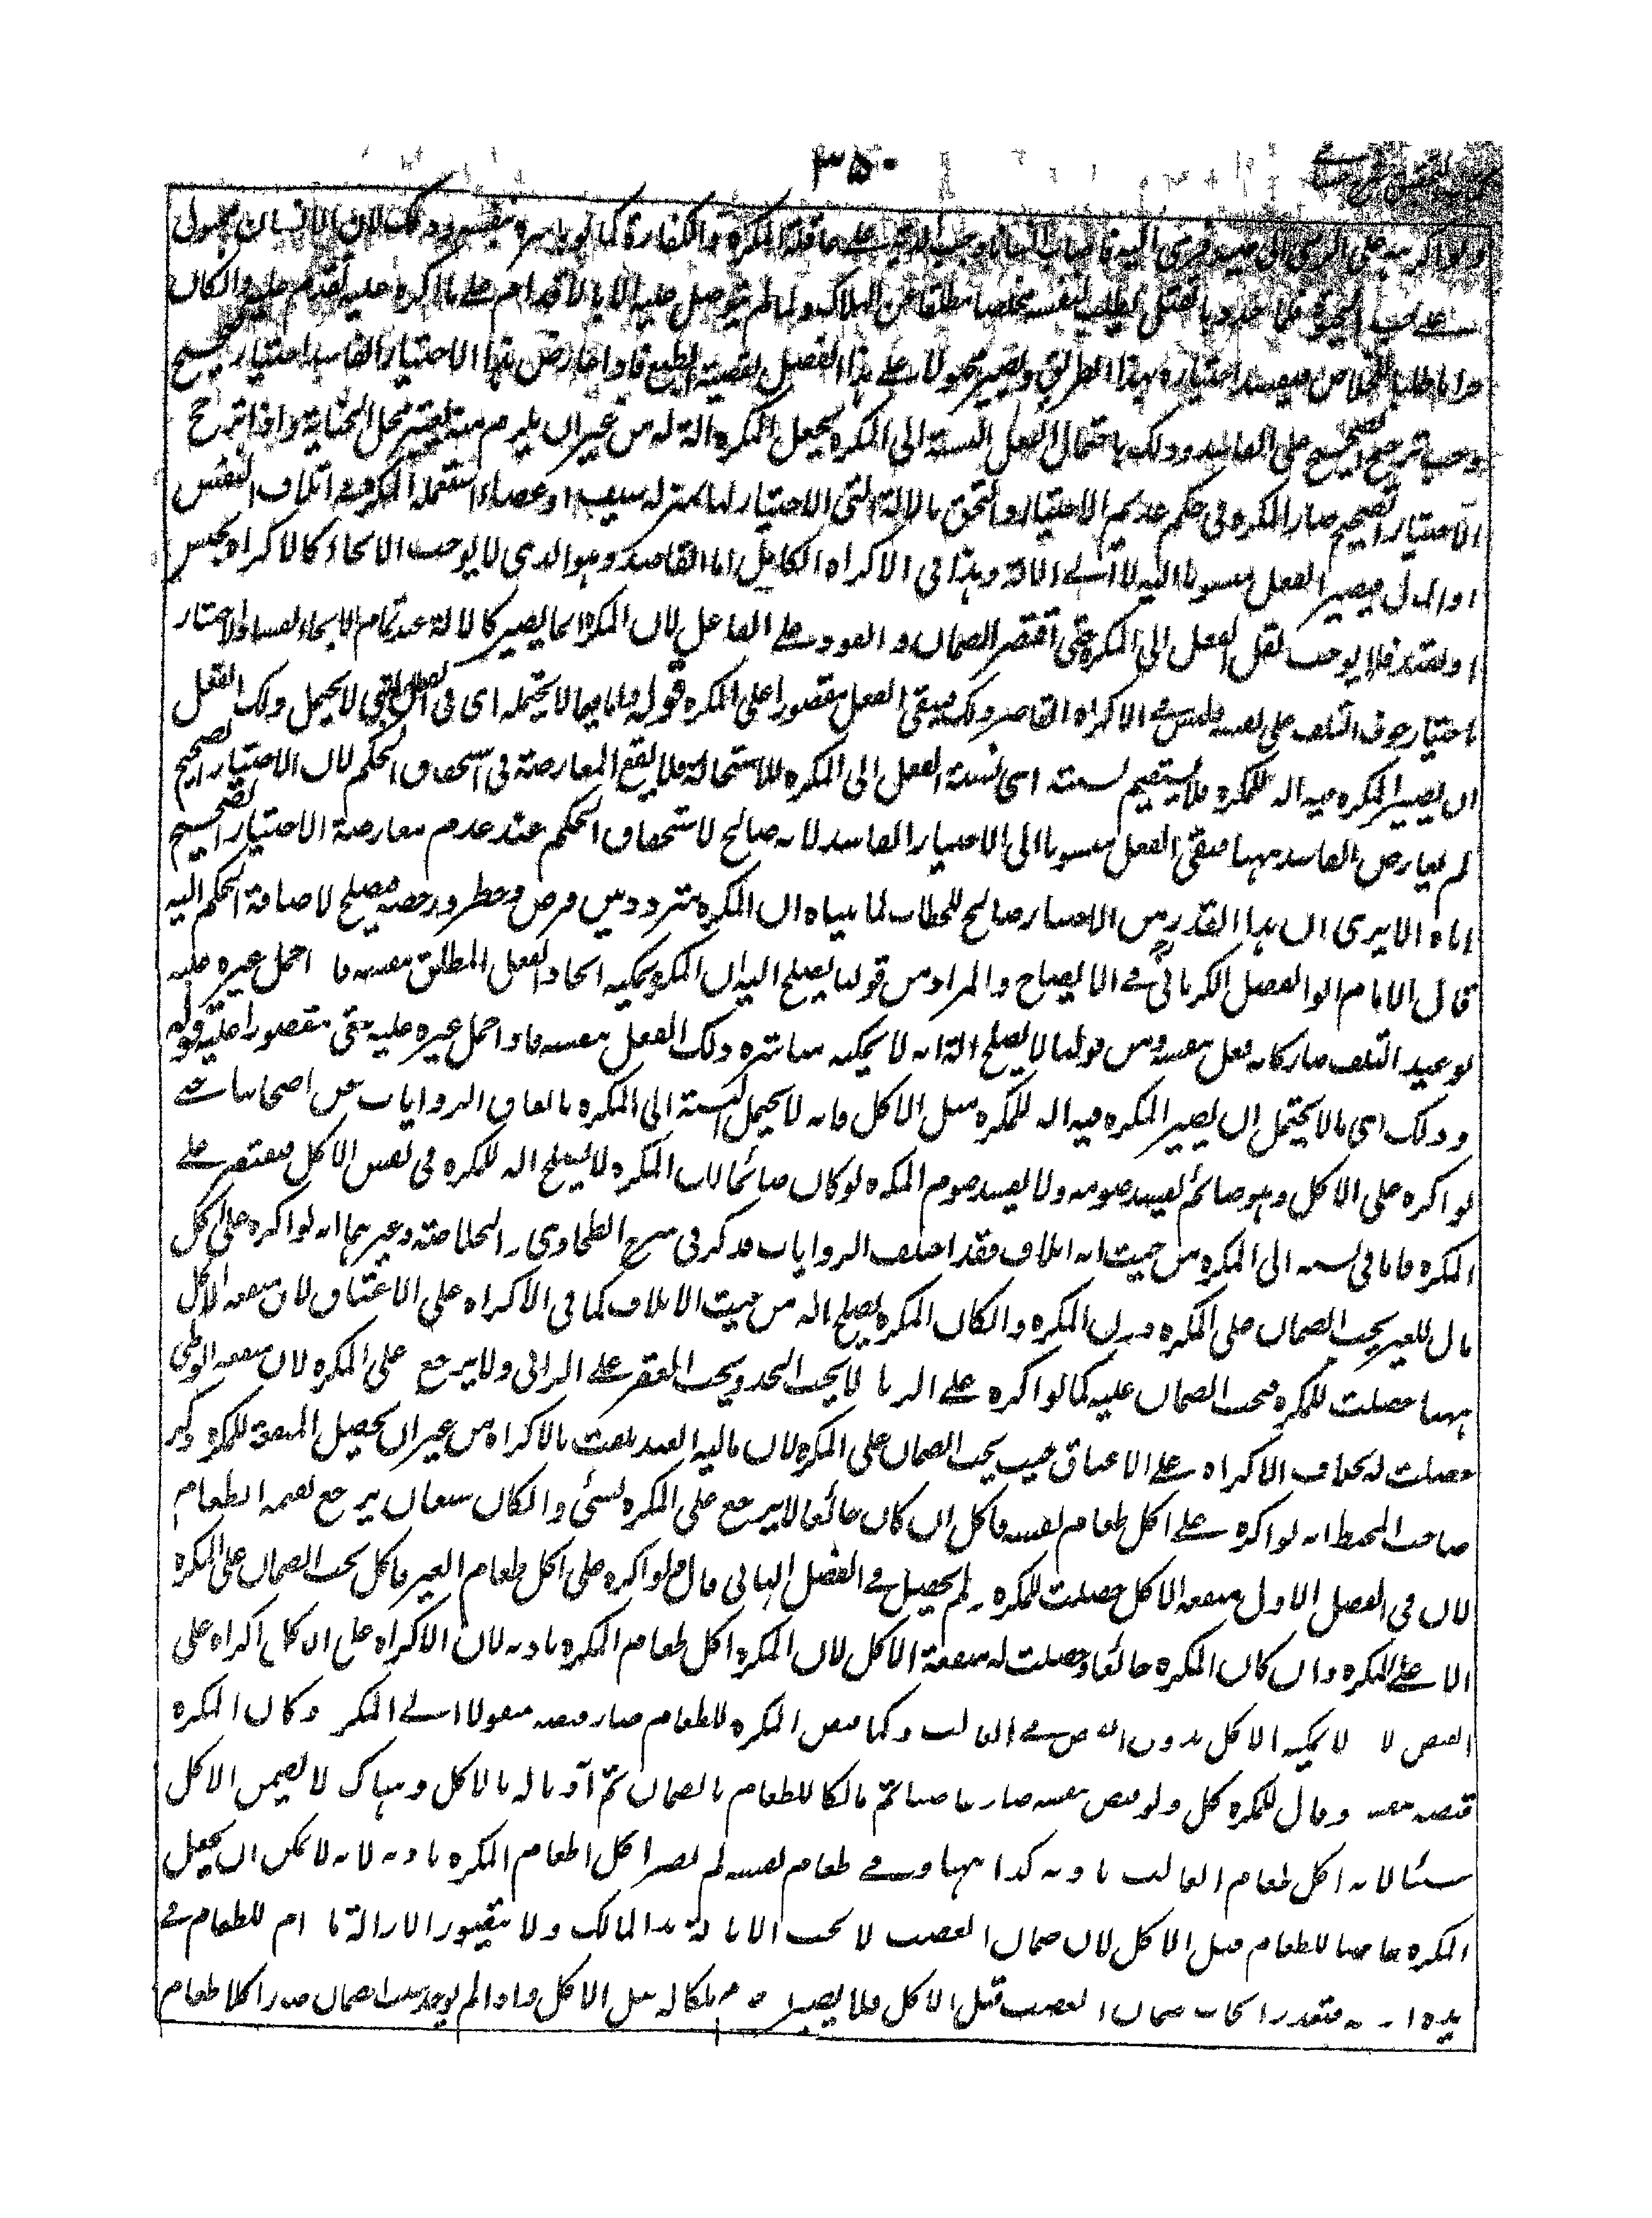 ٣٥٠
ولو اكرهه على الرمي الى صيد فرمى اليه فاصاب انسانا وجب الدية على عاقلة المكره والكفارة كما لو باشره بنفسه وذلك لان الانسان مجبول
على حب الحيوة فلما هدد بالقتل يطلب لنفسه مخلصا مطلقا عن الهلاك ولما لم يتوصل عليه الا بالاقدام على ما اكره عليه تقدم عليه وان كان
حراما طلبا للخلاص فيفسد اختياره بهذا الطريق ويصير مجبولا على هذا الفصل لقضية الطبع فاذا عارض هذا الاختيار الفاسد اختيار صحيح
وجب ترجيح الصحيح على الفاسد وذلك باحتمال الفعل النسبة الى المكره بجعل المكره الة له من غير ان يلزم منه تغيير محل الجناية واذا ترجح
الاختيار الصحيح صار المكره في حكم عديم الاختيار والتحق بالالة التي لا اختيار لها بمنزلة سيف او عصا استعمله المكره في اتلاف النفس
او المال فيصير الفعل منسوبا اليه لا الى الالة وهذا في الاكراه الكامل اما القاصر وهو الذي لا يوجب الالجاء كالاكراه بحبس
او بقيد فلا يوجب نقل الفعل الى المكره حتى اقتصر الضمان والقود على الفاعل لان المكره انما يصير كالالة عند تمام الالجاء لفساد الاختيار
باختيار خوف التلف على نفسه وليس في الاكراه القاصر ذلك فيبقى الفعل مقصورا على المكره قوله واما فيما لا يحتمله اى في الفعل الذي لا يحتمل ذلك الفعل
ان يصير المكره فيه الة للمكره فلا يستقيم نسبته اى نسبة الفعل الى المكره للاستحالة فلا يقع المعارضة في استحقاق الحكم لان الاختيار الصحيح
لم يعارض الفاسد ههنا فبقي الفعل منسوبا الى الاختيار الفاسد لانه صالح لاستحقاق الحكم عند عدم معارضة الاختيار الصحيح
اياه الا يرى ان هذا القدر من الاختيار صالح للخطاب لما بيناه ان المكره متردد بين فرض وحظر ورخصة فيصلح لاضافة الحكم اليه
قال الامام ابو الفضل الكرماني في الايضاح والمراد من قولنا يصلح الة ان المكره يمكنه ايجاد الفعل المطلق بنفسه فاذا حمل غيره عليه
بوعيد التلف صار كانه فعل بنفسه ومن قولنا لا يصلح الة انه لا يمكنه مباشرة ذلك الفعل بنفسه فاذا حمل غيره عليه بقي مقصورا عليه قوله
وذلك اى ما لا يحتمل ان يصير المكره فيه الة للمكره مثل الاكل فانه لا يحتمل النسبة الى المكره باتفاق الروايات عن اصحابنا حتى
لو اكره على الاكل وهو صائم يفسد صومه ولا يفسد صوم المكره لو كان صائما لان المكره لا يصلح الة للمكره في نفس الاكل فيقتصر على
المكره فاما في نسبته الى المكره من حيث انه اتلاف فقد اختلف الروايات فذكر في شرح الطحاوي والخلاصة وغيرهما انه لو اكره على اكل
مال الغير يجب الضمان على المكره دون المكره وان كان المكره يصلح الة من حيث الاتلاف كما في الاكراه على الاعتاق لان منفعة الاكل
ههنا حصلت للمكره فيجب الضمان عليه كما لو اكره على الزنا لا يجب الحد ويجب العقر على الزاني ولا يرجع على المكره لان منفعة الوطي
حصلت له بخلاف الاكراه على الاعتاق حيث يجب الضمان على المكره لان مالية العبد تلفت بالاكراه من غير ان يحصل المنفعة للمكره وذكر
صاحب المحيط انه لو اكره على اكل طعام نفسه فاكل ان كان جائعا لا يرجع على المكره بشئ وان كان شبعان يرجع بقيمة الطعام
لان في الفصل الاول منفعة الاكل حصلت للمكره ولم يحصل في الفصل الثاني قال ولو اكره على اكل طعام الغير فاكل يجب الضمان على المكره
لا على المكره وان كان المكره جائعا وحصلت له منفعة الاكل لان المكره اكل طعام المكره باذنه لان الاكراه على الاكل اكراه على
القبض لا لا يمكنه الاكل بدون القبض في الغالب وكما قبض المكره الطعام صار قبضه منقولا الى المكره وكان المكره
قبضه بنفسه وقال للمكره كل ولو قبض بنفسه صار غاصبا ثم مالكا للطعام بالضمان ثم آذنا له بالاكل وهناك لا يضمن الاكل
شيئا لانه اكل طعام الغاصب باذنه كذا ههنا وفي طعام نفسه لم يصر اكل طعام المكره باذنه لانه لا يمكن ان يجعل
المكره غاصبا للطعام قبل الاكل لان ضمان الغصب لا يجب الا بازالة يد المالك ولا يتصور الازالة ما دام الطعام في
يده او فتعذر ايجاب ضمان الغصب قبل الاكل فلا يصير ملكا له قبل الاكل واذا لم يوجد سبب الضمان صار اكلا طعام